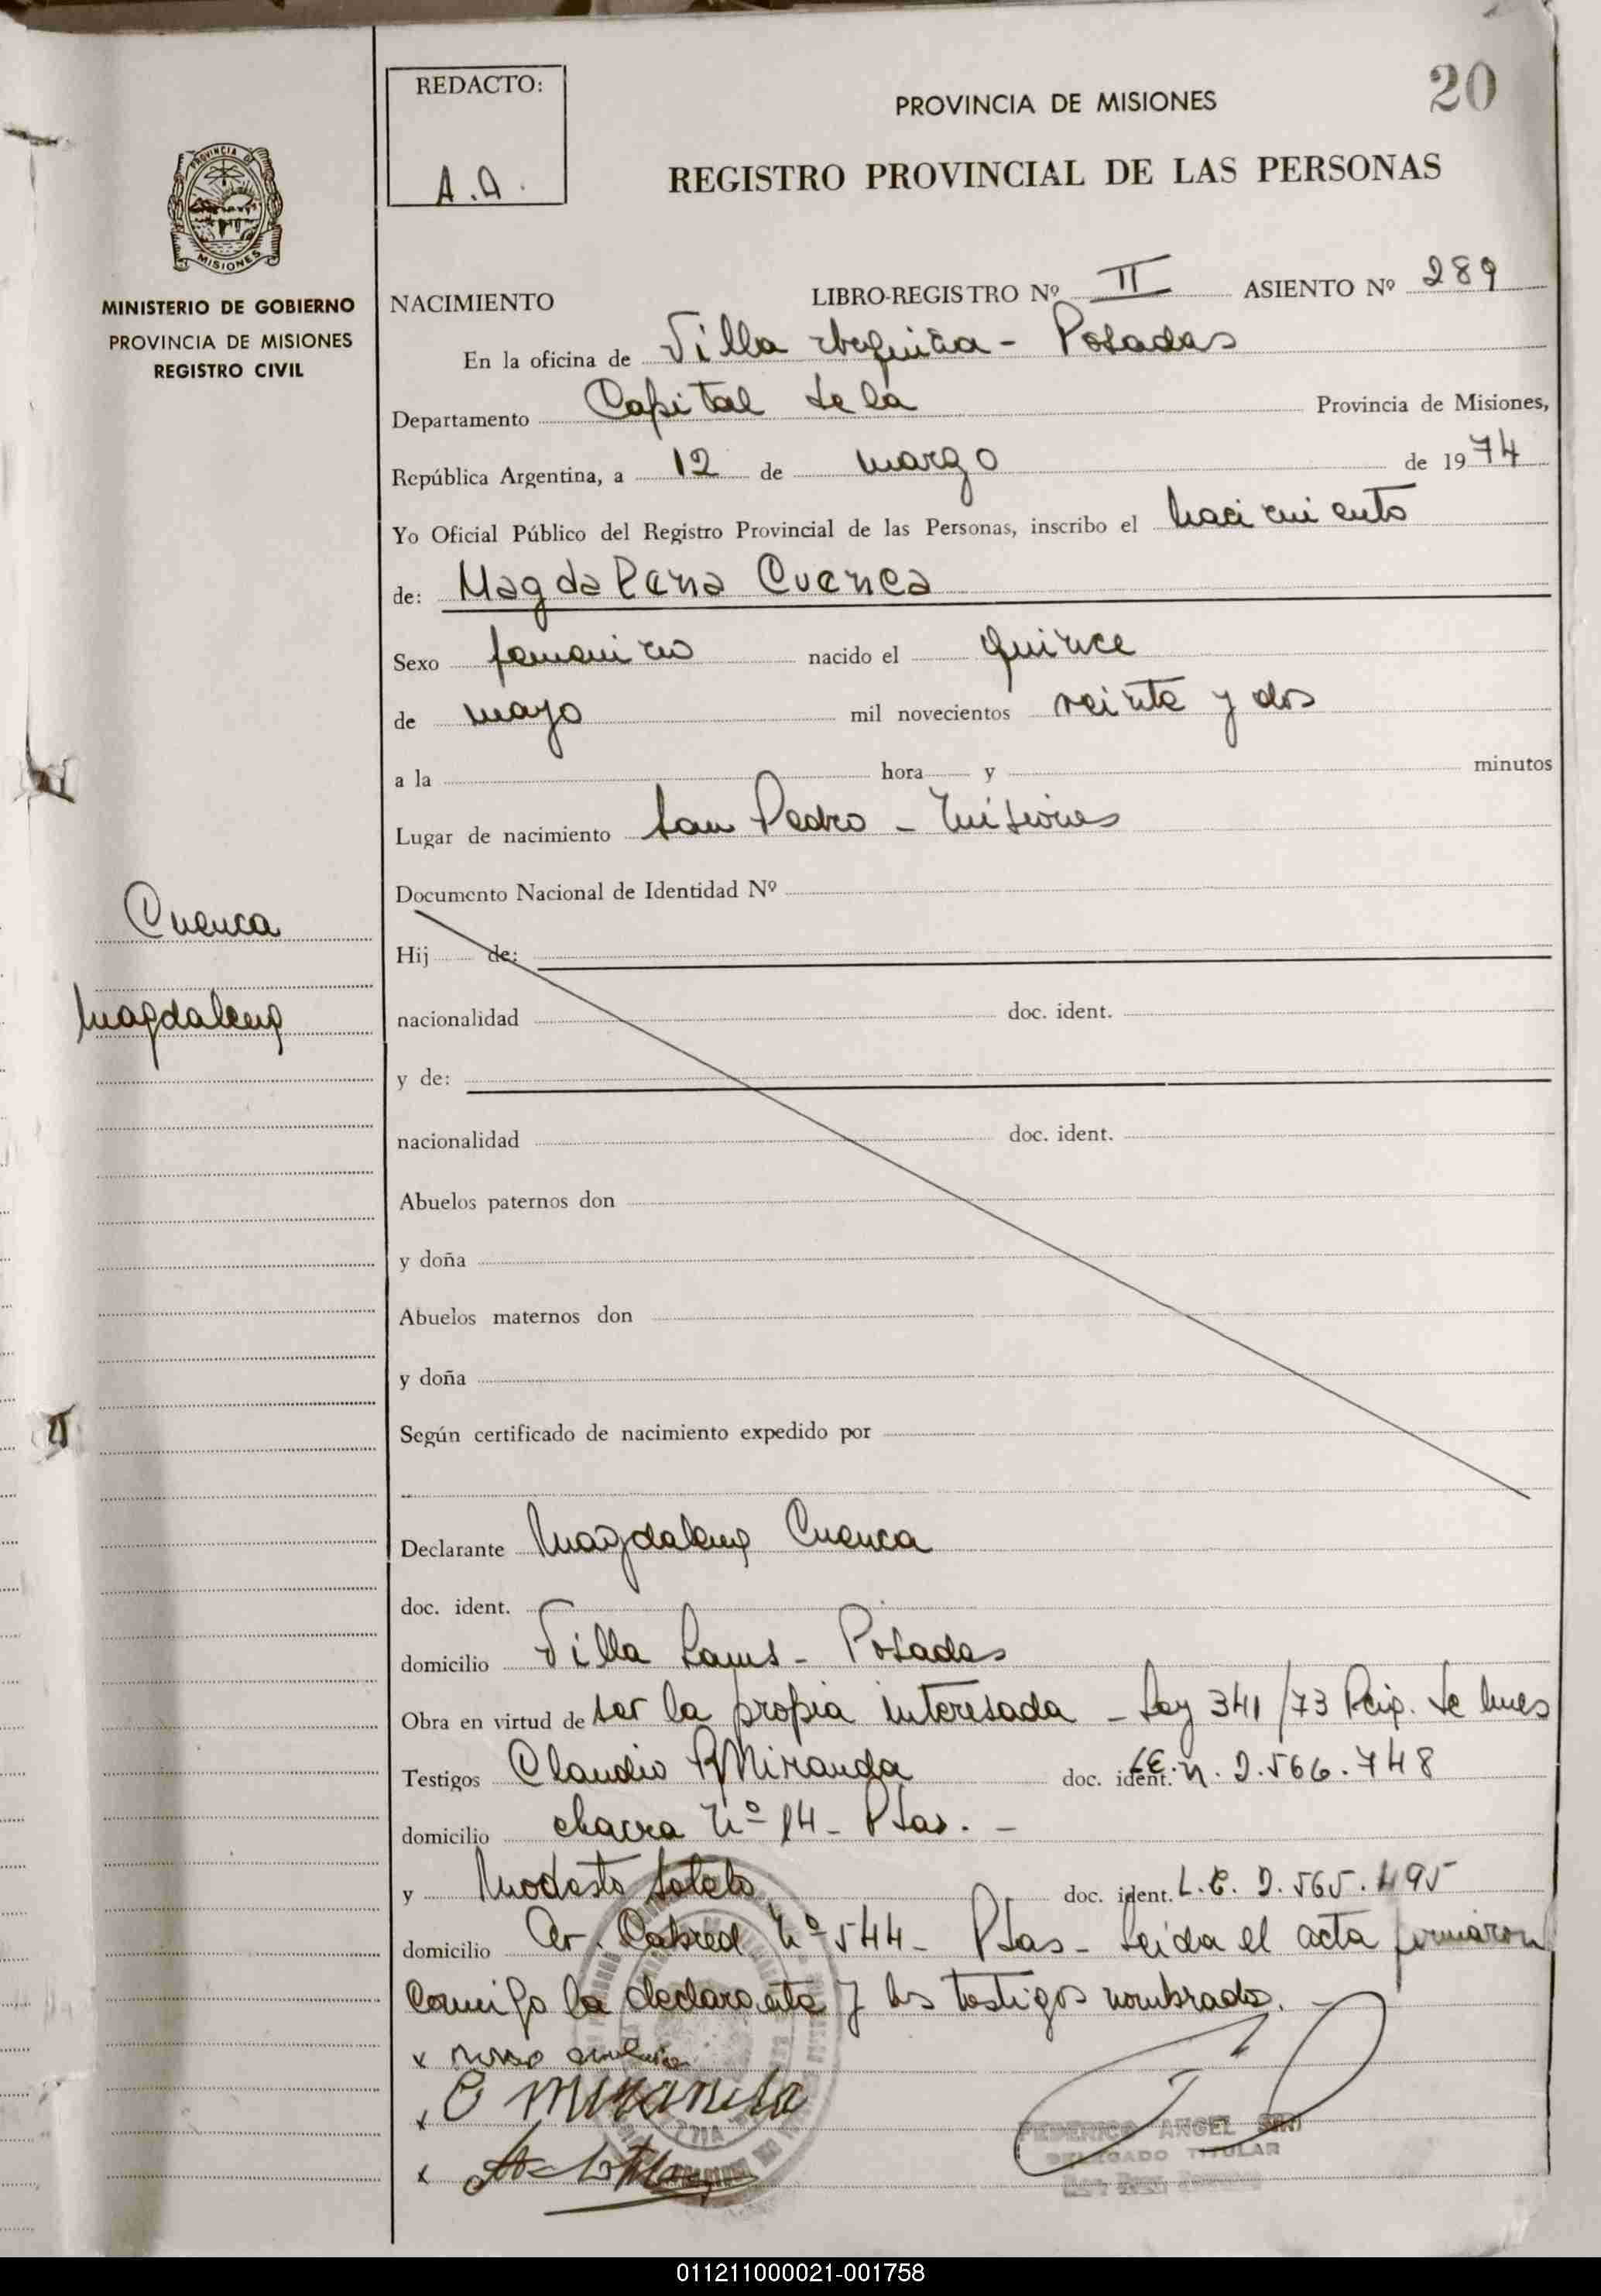 20
REDACTO:
A.A.
PROVINCIA DE MISIONES
REGISTRO PROVINCIAL DE LAS PERSONAS
PROVINCIA D
MISIONES
MINISTERIO DE GOBIERNO
PROVINCIA DE MISIONES
REGISTRO CIVIL
NACIMIENTO LIBRO-REGISTRO Nº II ASIENTO Nº 289
En la oficina de Villa - Posadas
Departamento Capital de la Provincia de Misiones,
República Argentina, a 12 de marzo de 1974
Yo Oficial Público del Registro Provincial de las Personas, inscribo el nacimiento
de: Magdalena Cuenca
Sexo femenino nacido el quince
de mayo mil novecientos veinte y dos
a la hora y minutos
Lugar de nacimiento San Pedro - Misiones
Documento Nacional de Identidad Nº
Cuenca
Magdalena
Hij de:
nacionalidad doc. ident.
y de:
nacionalidad doc. ident.
Abuelos paternos don
y doña
Abuelos maternos don
y doña
Según certificado de nacimiento expedido por
Declarante Magdalena Cuenca
doc. ident.
domicilio Villa - Posadas
Obra en virtud de ser la propia interesada - Ley 341/73
Testigos Claudio Miranda doc. ident. LE. n. 2.566.748
domicilio chacra Nº 14 - Psas. -
y Modesto Sotelo doc. ident. L.E. 2.565.495
domicilio Av. Cabred Nº 544 - Psas - Leida el acta firmaron
conmigo la declarante y los testigos nombrados.
x
x C Miranda
x
FEDERICO ANGEL
DELEGADO TITULAR
011211000021-001758